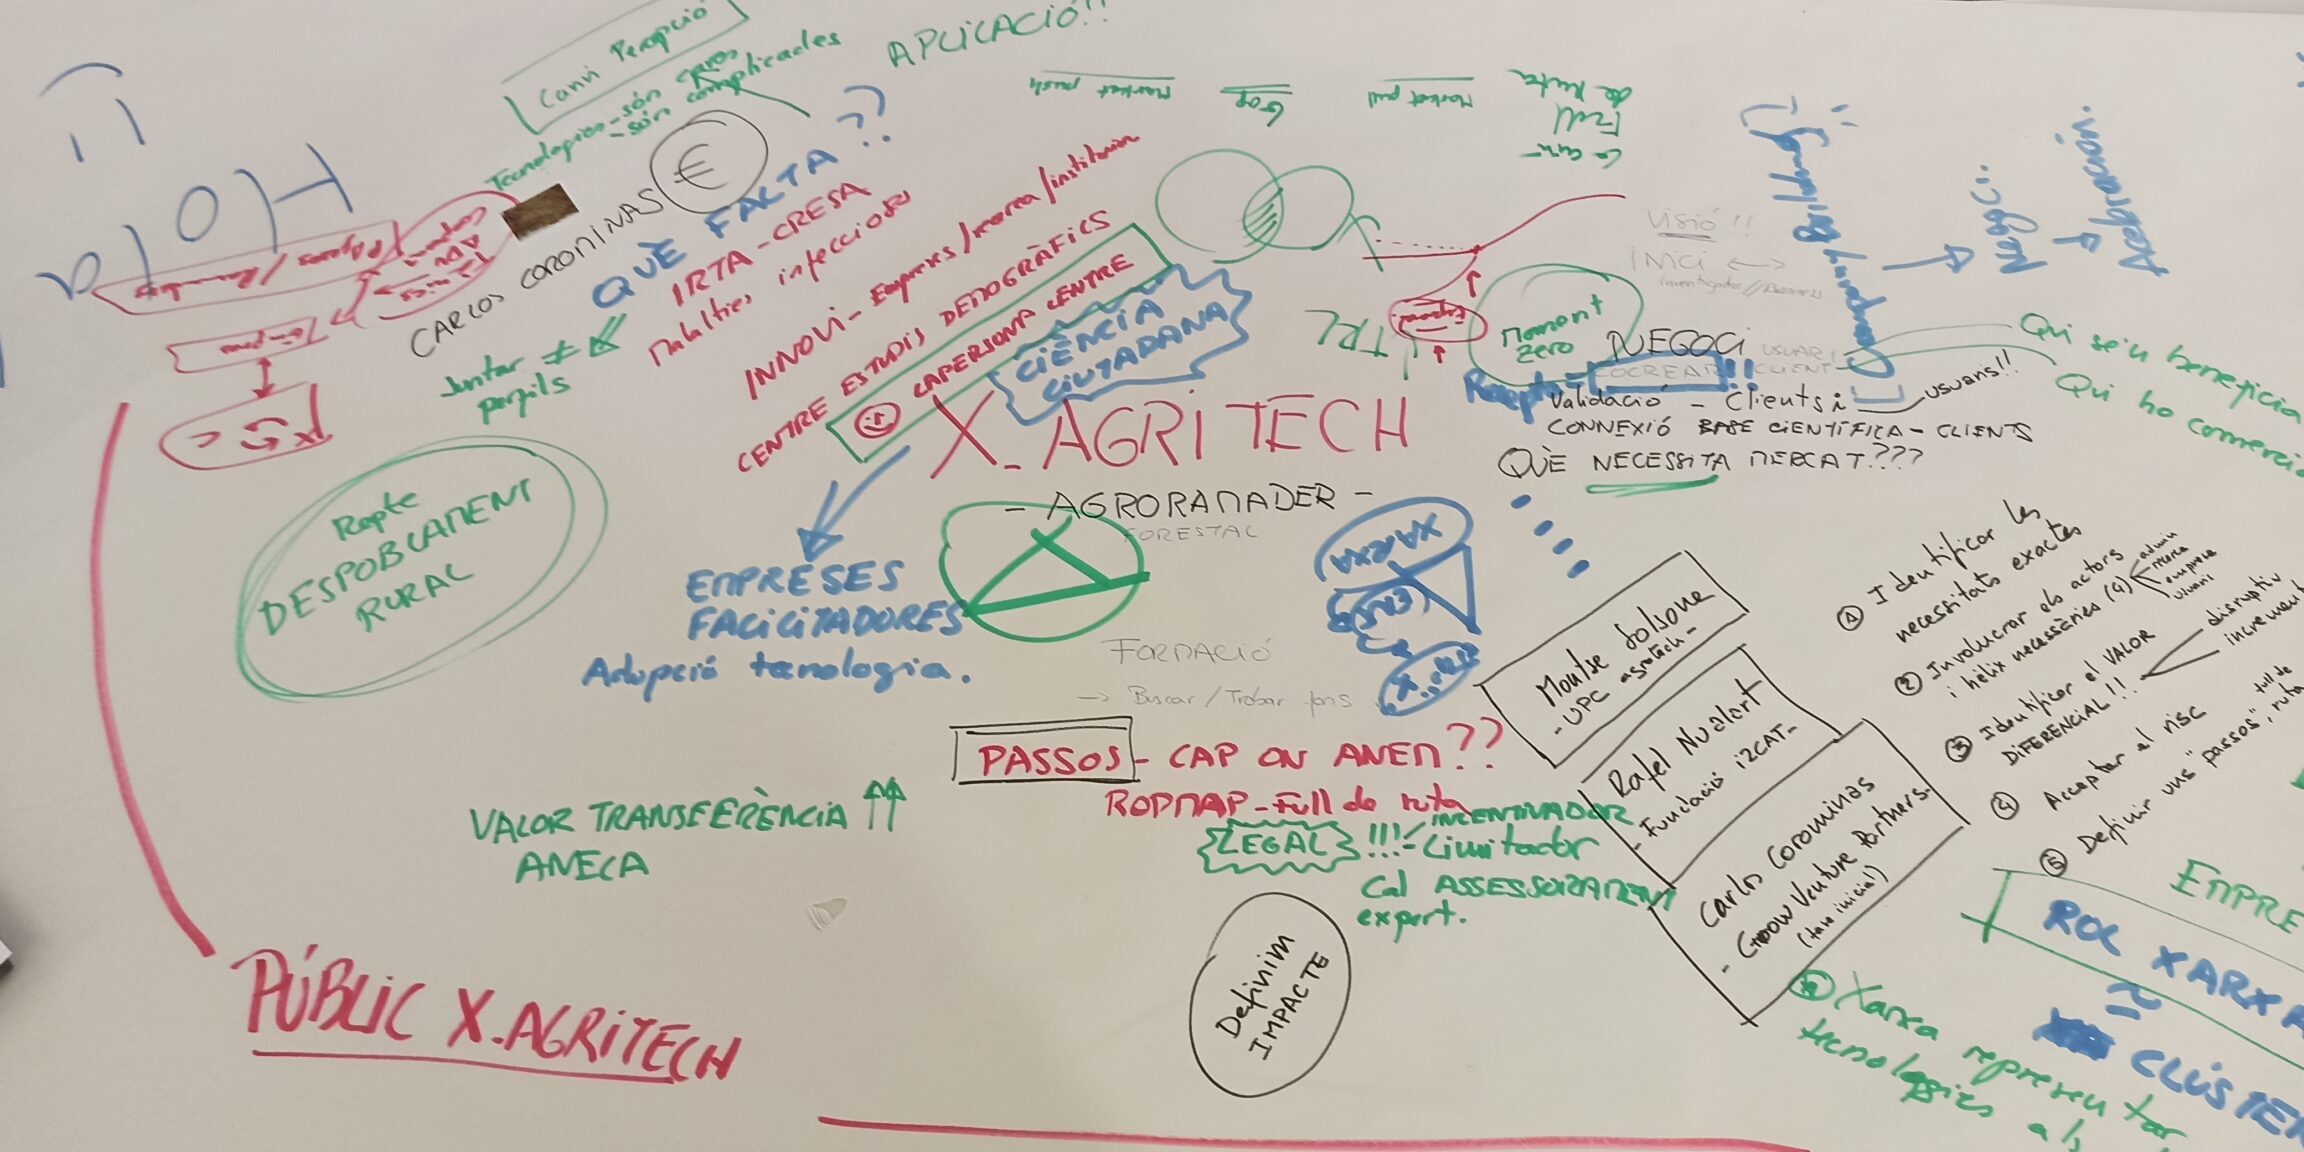 Canvi Percepció
Tecnologies - són cares
- són complicades
APLICACIÓ!!
HOLA
CARLOS COROMINAS €
QUÈ FALTA??
IRTA - CRESA
Malalties infeccioses
INNOVI - Empreses/recerca/institucion
CENTRE ESTUDIS DEMOGRÀFICS
LAPERSONA CENTRE
CIÈNCIA
CIUTADANA
Juntar ≠
perfils
Market push
Gap
Market pull
Full
de Ruta
TRL
Moment
zero
VISIÓ!!
iMCi
NEGOCI
USUARI
COCREAR!! CLIENT
Repte
Validació - Clients i usuaris!!
CONNEXIÓ BASE CIENTÍFICA - CLIENTS
QUÈ NECESSITA MERCAT???
Negoci
Acceleració
Qui se'n beneficia
Qui ho comercia
X_AGRITECH
- AGRORAMADER -
FORESTAL
Repte
DESPOBLAMENT
RURAL
EMPRESES
FACILITADORES
Adopció tecnologia.
XARXA
FORMACIÓ
→ Buscar/Trobar fons
PASSOS - CAP ON ANEM??
RODMAP - Full de ruta
LEGAL !!! - INCENTIVADOR
- Limitador
Cal ASSESSORAMENT
expert.
VALOR TRANSFERÈNCIA ↑↑
ANECA
Definim
IMPACTE
PÚBLIC X.AGRITECH
Montse Solsona
- UPC agrotech -
Rafel Nualart
- Fundació i2CAT -
Carlos Corominas
- Groow Venture Partners -
(fase inicial)
① Identificar les
necessitats exactes
② Involucrar els actors
i hèlix necessàries (4)
admin
recerca
empresa
usuari
③ Identificar el VALOR
DIFERENCIAL!!
disruptiu
increment
④ Acceptar el risc
⑤ Definir uns "passos", full de ruta
EMPRE
ROL XARXA
≈
CLÚSTER
Xarxa representar
tecnologies als